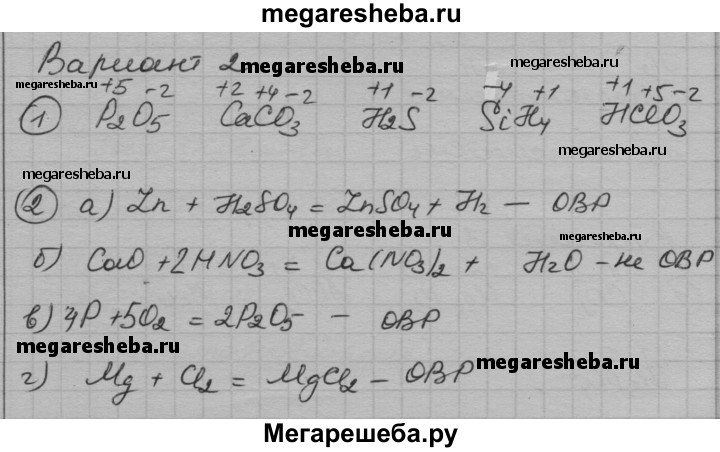 megaresheba.ru
Вариант 2 megaresheba.ru megaresheba.ru
megaresheba.ru +5 -2 +2 +4 -2 +1 -2 -4 +1 +1 +5 -2
① P2O5 CaCO3 H2S SiH4 HClO3
megaresheba.ru megaresheba.ru
② а) Zn + H2SO4 = ZnSO4 + H2 - ОВР
megaresheba.ru megaresheba.ru
б) CaO + 2HNO3 = Ca(NO3)2 + H2O - не ОВР
в) 4P + 5O2 = 2P2O5 - ОВР
megaresheba.ru megaresheba.ru
г) Mg + Cl2 = MgCl2 - ОВР megaresheba.ru
Мегарешеба.ру